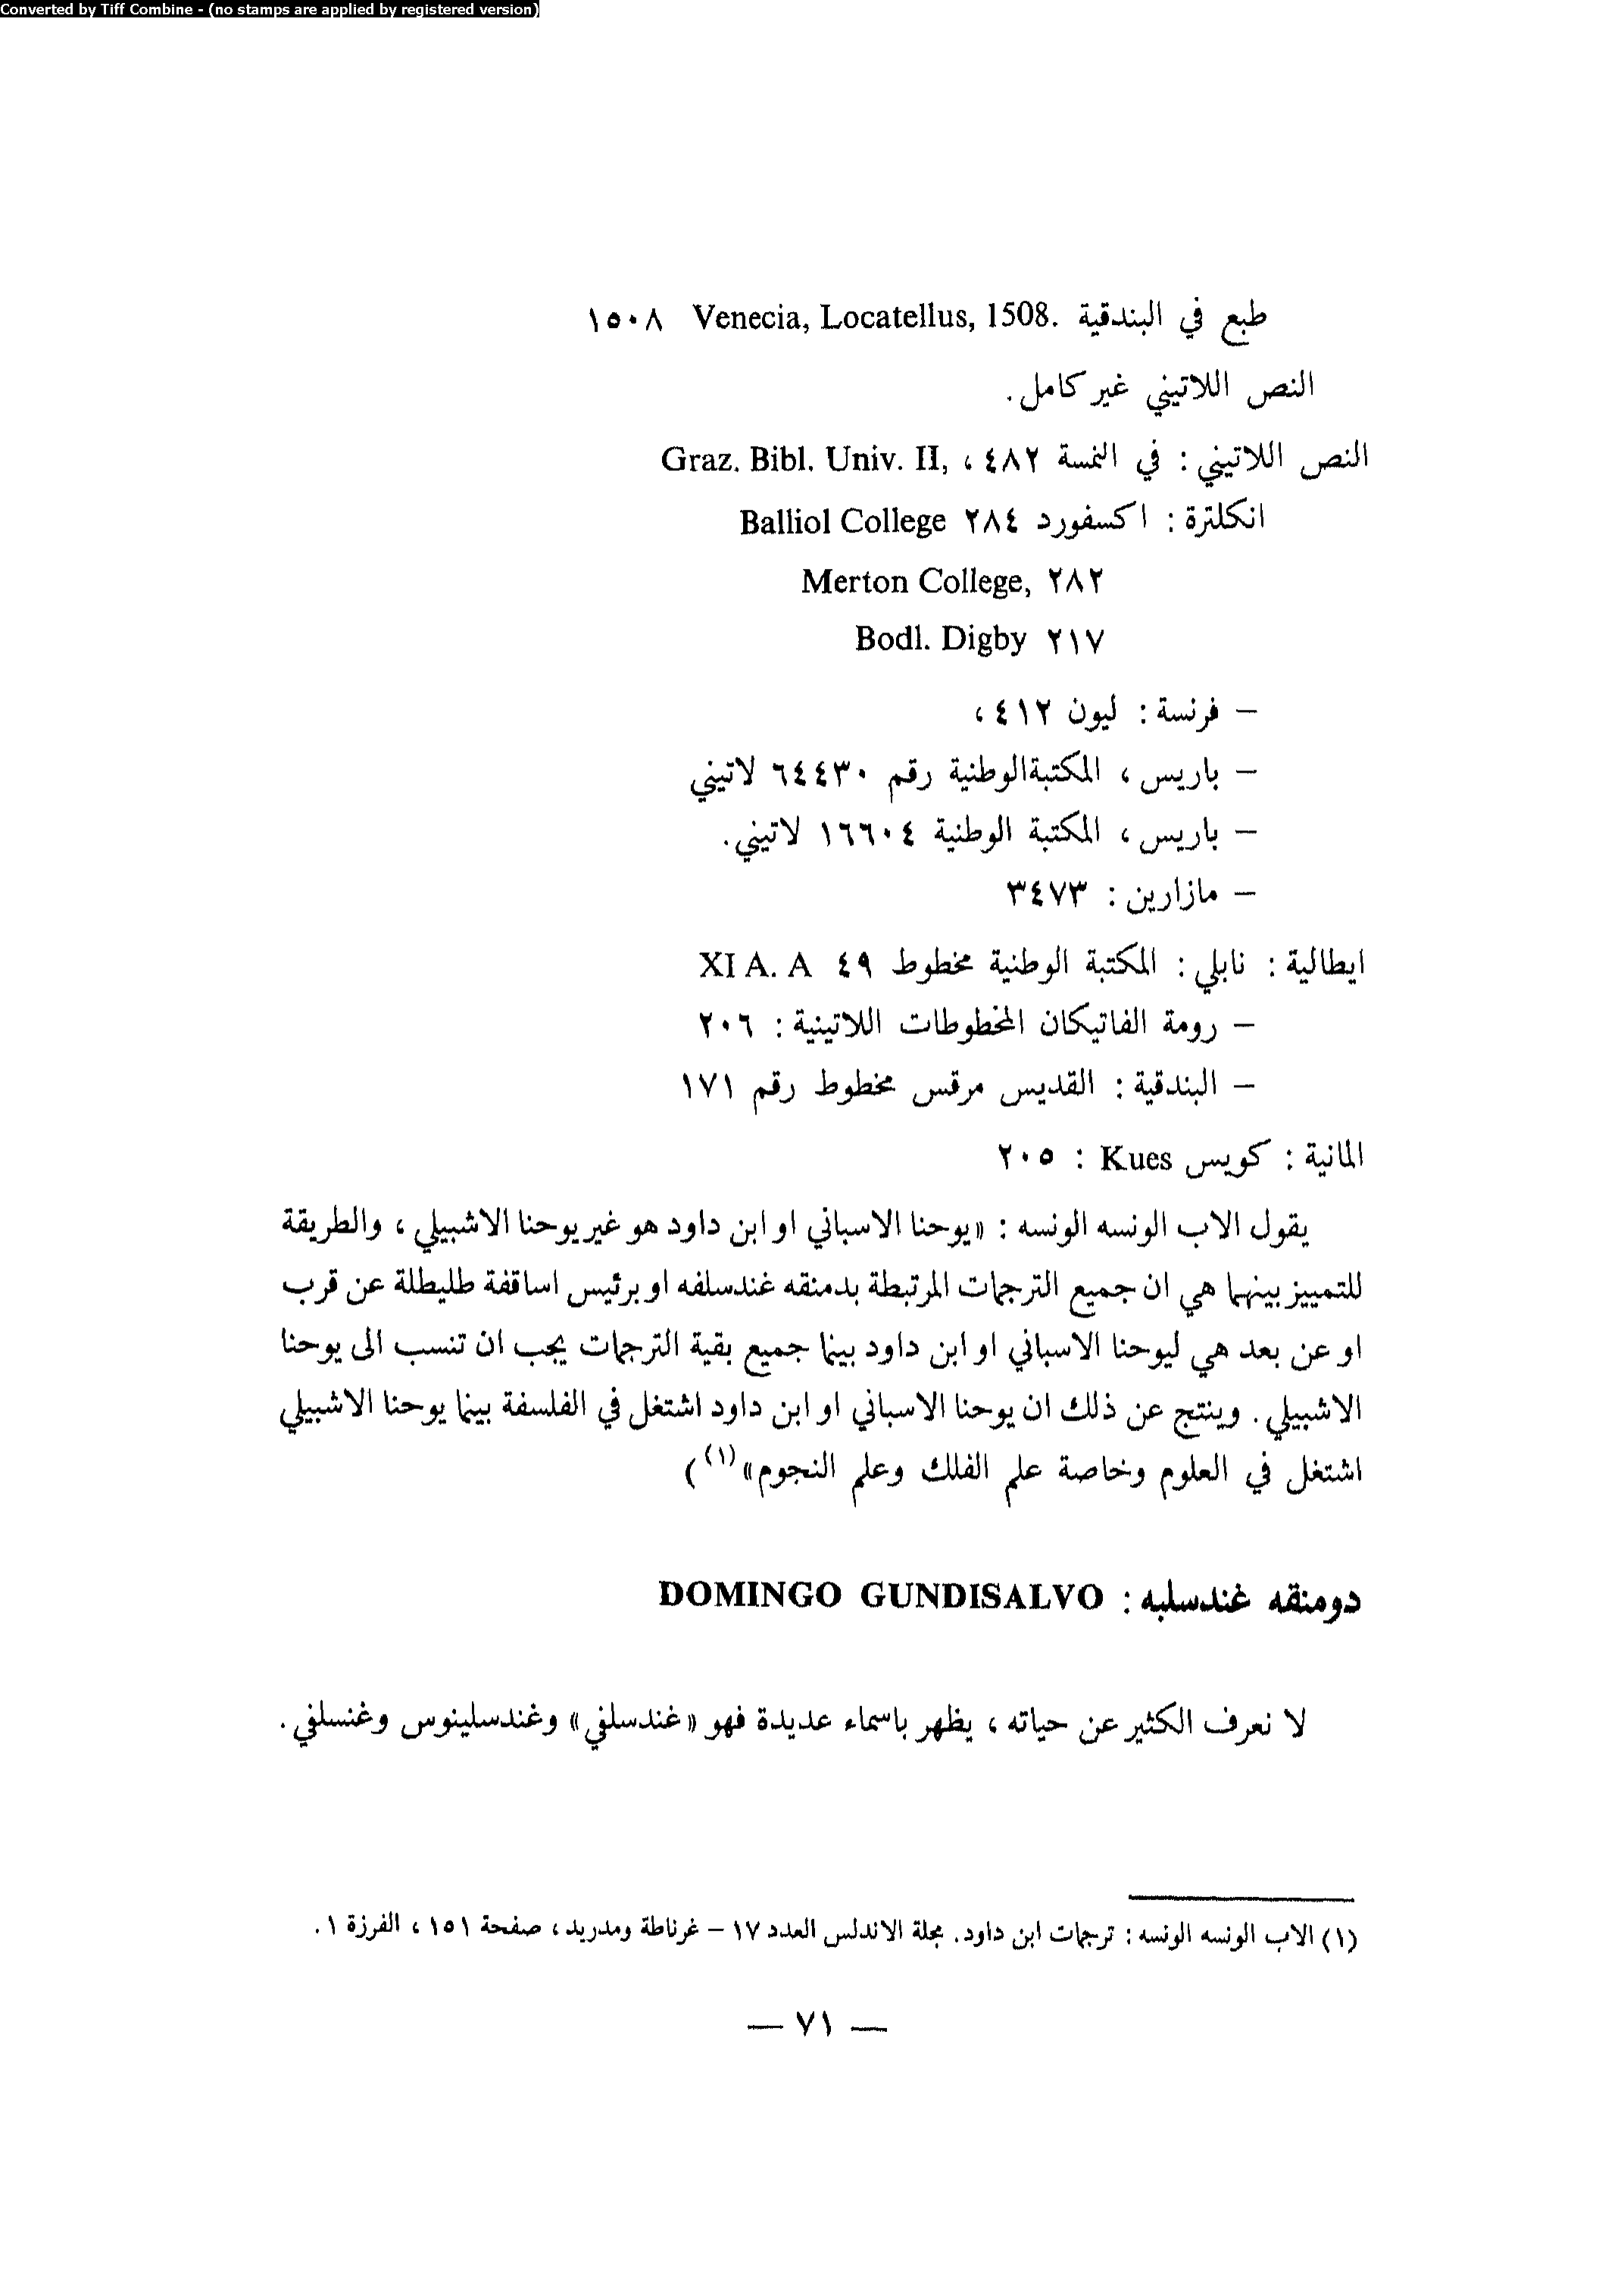 Converted by Tiff Combine - (no stamps are applied by registered version)
طبع في البندقية .Venecia, Locatellus, 1508 ١٥٠٨
النص اللاتيني غير كامل.
النص اللاتيني : في النمسة ٤٨٢ ، Graz. Bibl. Univ. II,
انكلترة : اكسفورد ٢٨٤ Balliol College
Merton College, ٢٨٢
Bodl. Digby ٢١٧
– فرنسة : ليون ٤١٢ ،
– باريس ، المكتبةالوطنية رقم ٦٤٤٣٠ لاتيني
– باريس ، المكتبة الوطنية ١٦٦٠٤ لاتيني.
– مازارين : ٣٤٧٣
ايطالية : نابلي : المكتبة الوطنية مخطوط ٤٩ XI A. A
– رومة الفاتيكان المخطوطات اللاتينية : ٢٠٦
– البندقية : القديس مرقس مخطوط رقم ١٧١
المانية : كويس Kues : ٢٠٥
يقول الاب الونسه الونسه : «يوحنا الاسباني او ابن داود هو غير يوحنا الاشبيلي ، والطريقة
للتمييز بينهما هي ان جميع الترجمات المرتبطة بدمنقه غندسلفه او برئيس اساقفة طليطلة عن قرب
او عن بعد هي ليوحنا الاسباني او ابن داود بينما جميع بقية الترجمات يجب ان تنسب الى يوحنا
الاشبيلي . وينتج عن ذلك ان يوحنا الاسباني او ابن داود اشتغل في الفلسفة بينما يوحنا الاشبيلي
اشتغل في العلوم وخاصة علم الفلك وعلم النجوم»(١) )
دومنقه غندسلبه : DOMINGO GUNDISALVO
لا نعرف الكثير عن حياته ، يظهر باسماء عديدة فهو «غندسلفي» وغندسلينوس وغنسلفي .
(١) الاب الونسه الونسه : ترجمات ابن داود. مجلة الاندلس العدد ١٧ – غرناطة ومدريد ، صفحة ١٥١ ، الفرزة ١ .
— ٧١ —